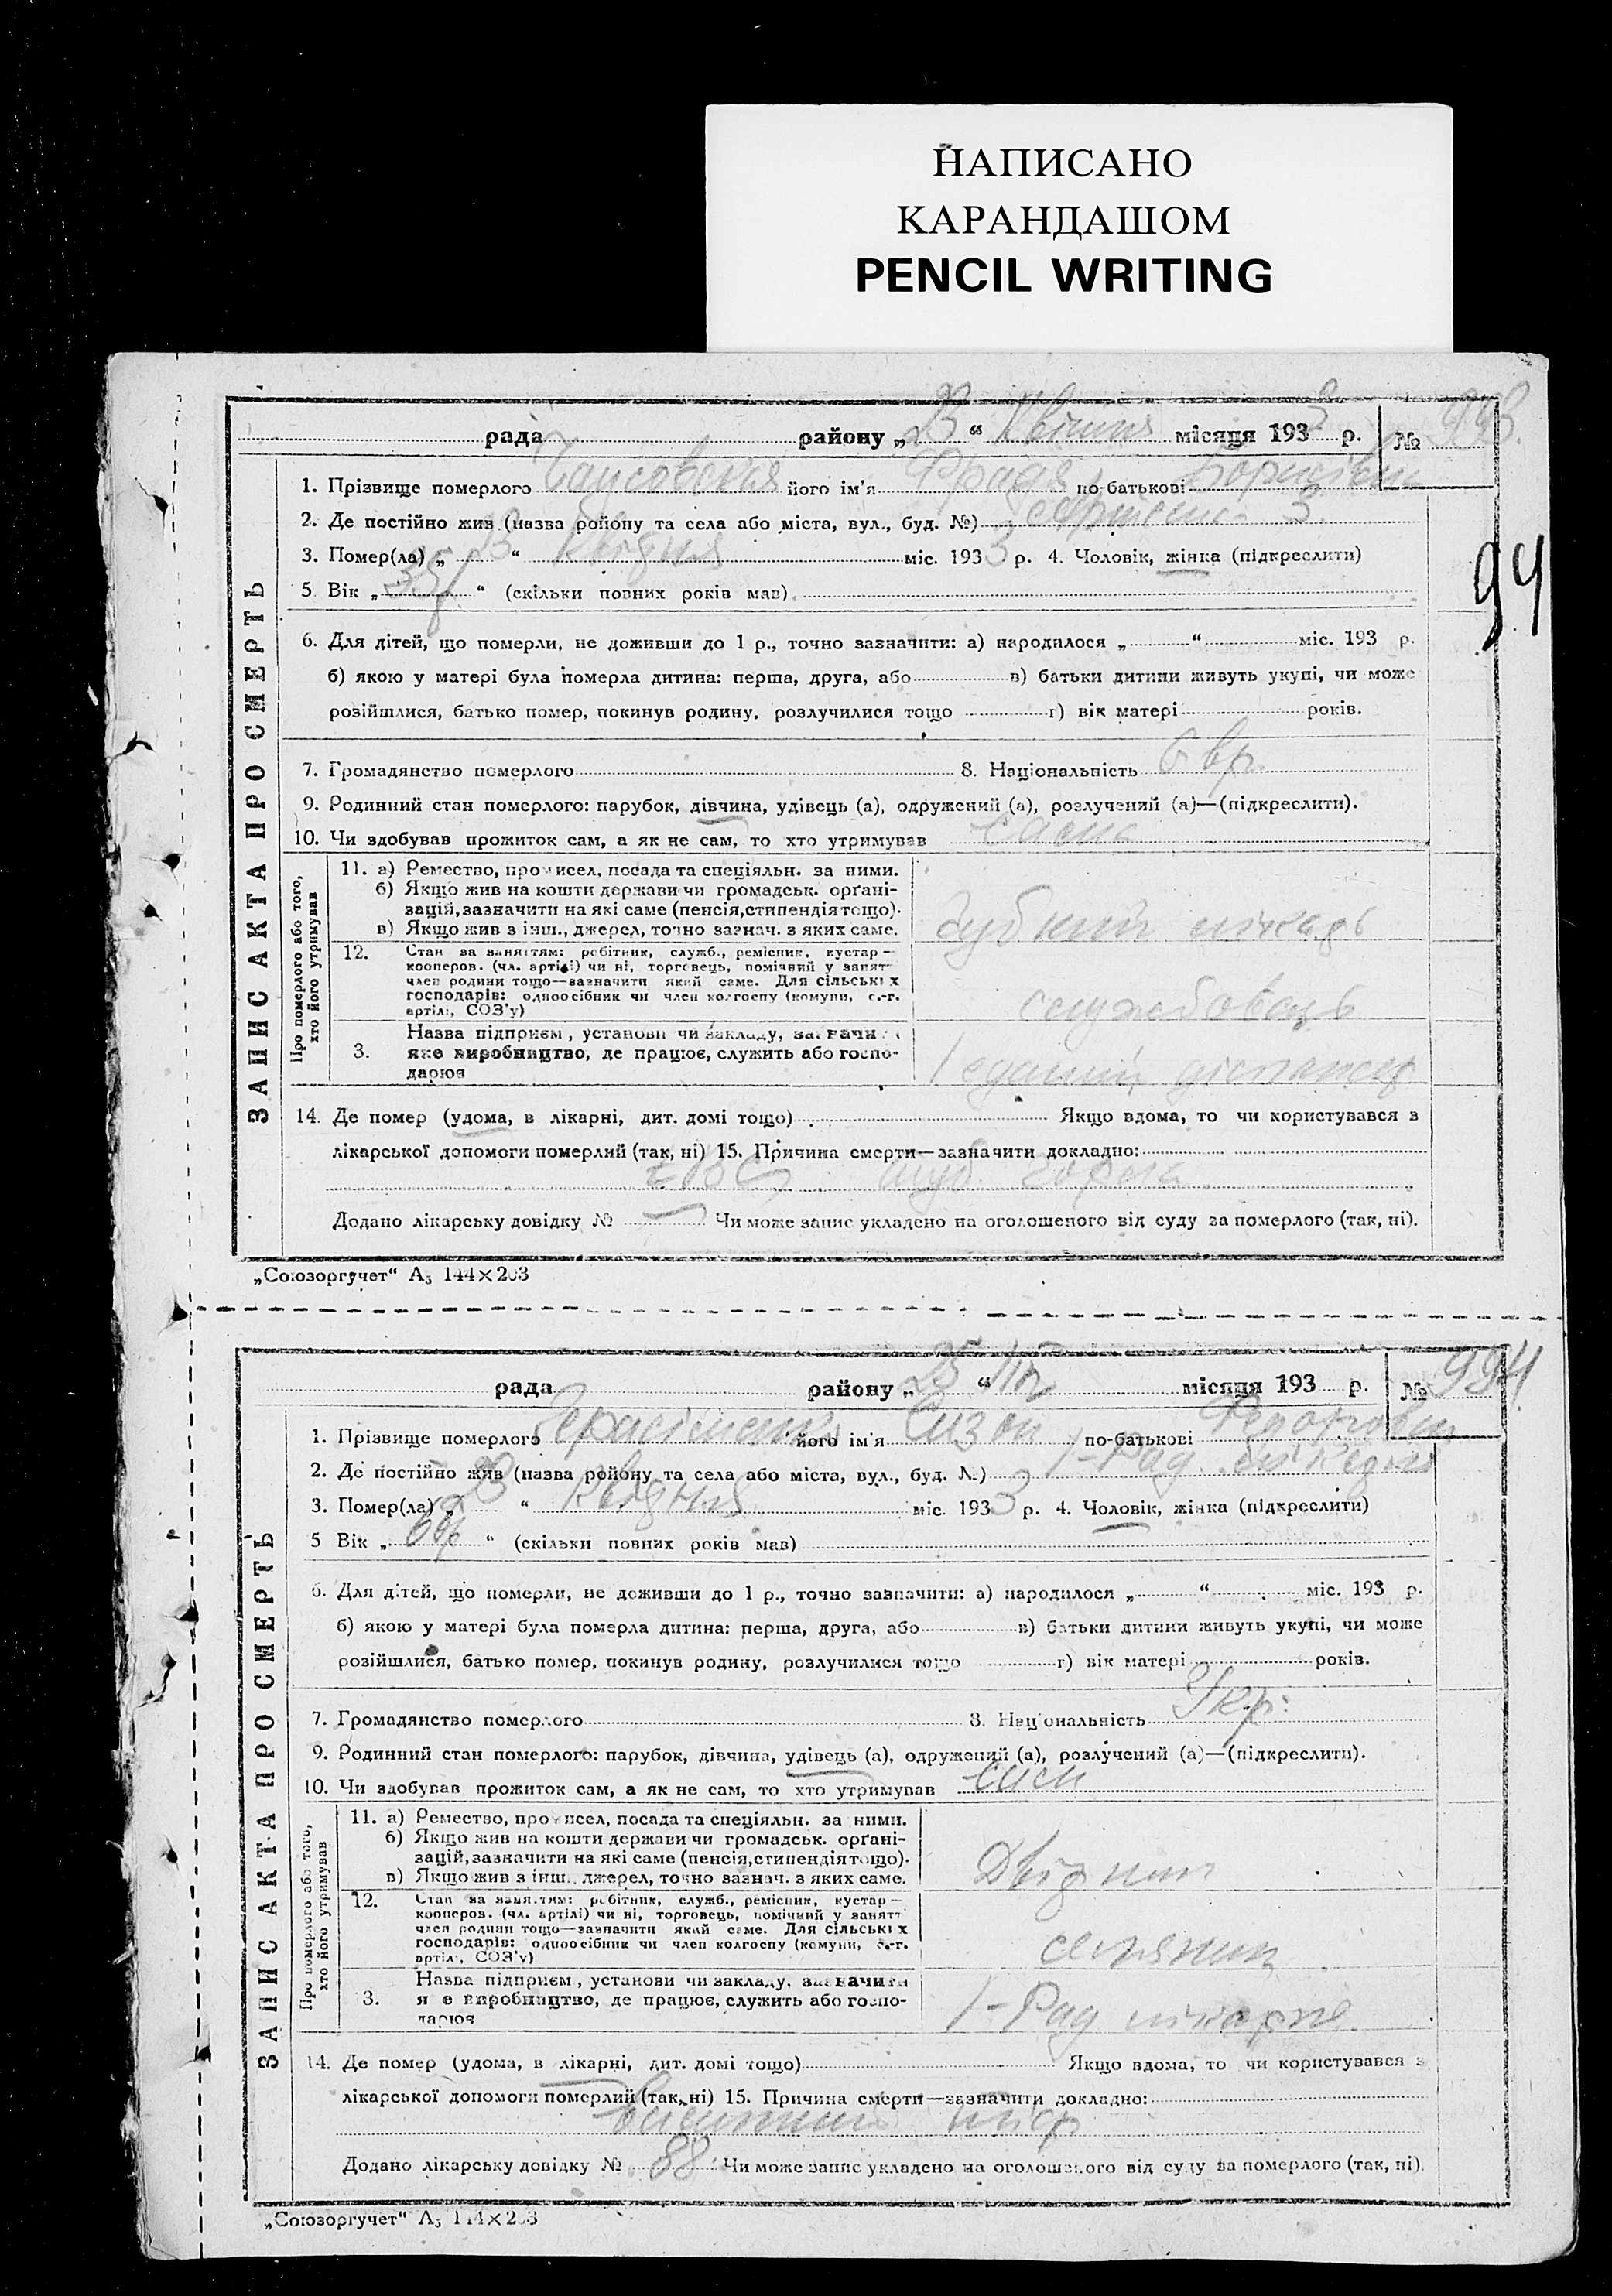 НАПИСАНО
КАРАНДАШОМ
PENCIL WRITING
94
рада району „ 23 “ Квітня місяця 1933 р. № 993
1. Прізвище померлого його ім'я по-батькові
2. Де постійно жив (назва району та села або міста, вул., буд. №) 3
3. Помер(ла) „ 23 “ Квітня міс. 1933 р. 4. Чоловік, жінка (підкреслити)
5 Вік „ “ (скільки повних років мав)
6. Для дітей, що померли, не доживши до 1 р., точно зазначити: а) народилося „ “ міс. 193 р.
б) якою у матері була померла дитина: перша, друга, або в) батьки дитини живуть укупі, чи може
розійшлися, батько помер, покинув родину, розлучилися тощо г) вік матері років.
7. Громадянство померлого 8. Національність Євр.
9. Родинний стан померлого: парубок, дівчина, удівець (а), одружений (а), розлучений (а)—(підкреслити).
10. Чи здобував прожиток сам, а як не сам, то хто утримував сама
ЗАПИС АКТА ПРО СМЕРТЬ
Про померлого або того, хто його утримував
11. а) Ремество, промисел, посада та спеціяльн. за ними.
б) Якщо жив на кошти держави чи громадськ. орґані-
зацій, зазначити на які саме (пенсія, стипендія тощо).
в) Якщо жив з інш., джерел, точно зазнач. з яких саме.
зубний лікарь
12. Стан за заняттям: робітник, служб., ремісник, кустар—
кооперов. (чл. артілі) чи ні, торговець, помічний у занятт
член родини тощо—зазначити який саме. Для сільських
господарів: одноосібник чи член колгоспу (комуни, с.-г.
артілі, СОЗ'у)
службовець
Назва підприєм., установи чи закладу, зазначи
3. яке виробництво, де працює, служить або госпо-
дарює
14. Де помер (удома, в лікарні, дит. домі тощо) Якщо вдома, то чи користувався з
лікарської допомоги померлий (так, ні) 15. Причина смерти—зазначити докладно:
Додано лікарську довідку № Чи може запис укладено на оголошеного від суду за померлого (так, ні).
„Союзоргучет“ А₅ 144×203
рада району „ 25 “ місяця 193 р. № 994
1. Прізвище померлого його ім'я по-батькові Федорович
2. Де постійно жив (назва району та села або міста, вул., буд. №)
3. Помер(ла) „ 23 “ Квітня міс. 1933 р. 4. Чоловік, жінка (підкреслити)
5 Вік „ “ (скільки повних років мав)
6. Для дітей, що померли, не доживши до 1 р., точно зазначити: а) народилося „ “ міс. 193 р.
б) якою у матері була померла дитина: перша, друга, або в) батьки дитини живуть укупі, чи може
розійшлися, батько помер, покинув родину, розлучилися тощо г) вік матері років.
7. Громадянство померлого 8. Національність Укр.
9. Родинний стан померлого: парубок, дівчина, удівець (а), одружений (а), розлучений (а)—(підкреслити).
10. Чи здобував прожиток сам, а як не сам, то хто утримував сам
ЗАПИС АКТА ПРО СМЕРТЬ
Про померлого або того, хто його утримував
11. а) Ремество, промисел, посада та спеціяльн. за ними.
б) Якщо жив на кошти держави чи громадськ. орґані-
зацій, зазначити на які саме (пенсія, стипендія тощо).
в) Якщо жив з інш., джерел, точно зазнач. з яких саме.
Двірник
12. Стан за заняттям: робітник, служб., ремісник, кустар—
кооперов. (чл. артілі) чи ні, торговець, помічний у занятт
член родини тощо—зазначити який саме. Для сільських
господарів: одноосібник чи член колгоспу (комуни, с.-г.
артіл., СОЗ'у)
Назва підприєм., установи чи закладу, зазначити
3. яке виробництво, де працює, служить або госпо-
дарює
1-Рад лікарня
14. Де помер (удома, в лікарні, дит. домі тощо) Якщо вдома, то чи користувався з
лікарської допомоги померлий (так, ні) 15. Причина смерти—зазначити докладно:
Додано лікарську довідку № 88 Чи може запис укладено на оголошеного від суду за померлого (так, ні).
„Союзоргучет“ А₅ 144×203